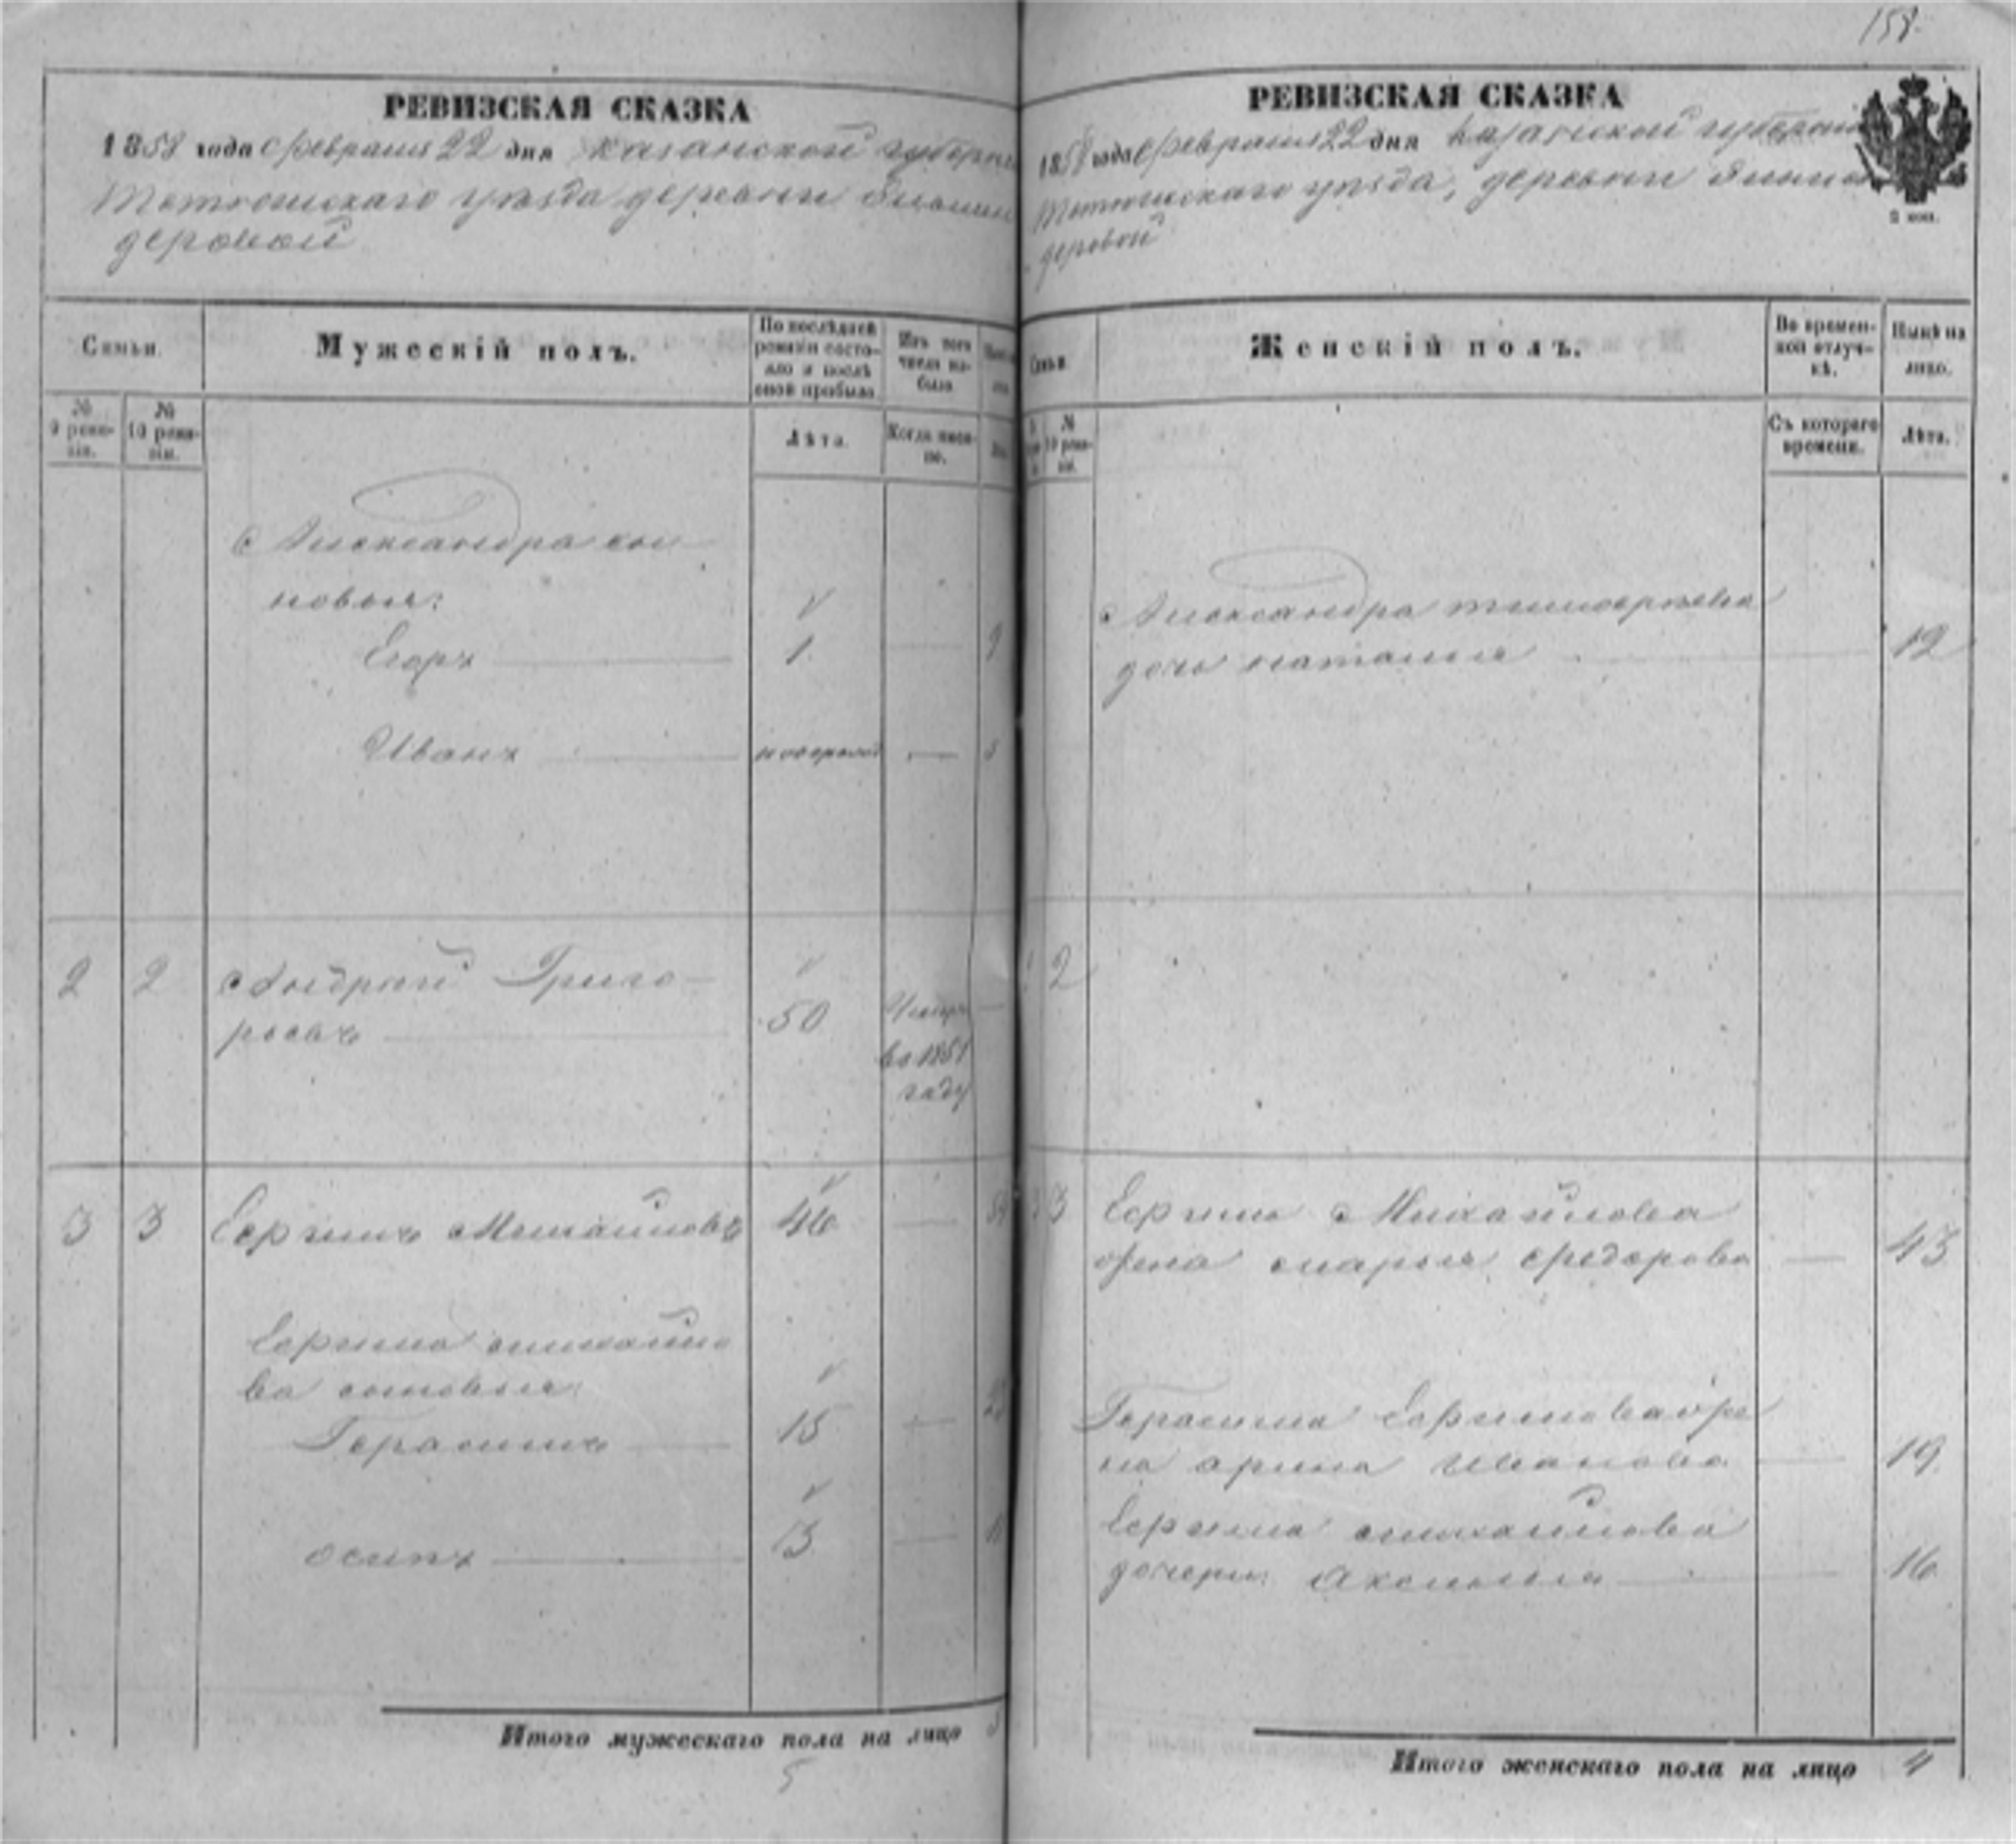 158
РЕВИЗСКАЯ СКАЗКА
1858 года февраля 22 дня Казанской губерни
Тетюшскаго уѣзда деревни
деровой
Семьи.
Мужескій полъ.
По послѣдней ревизіи состояло и послѣ оной прибыло.
Изъ того числа выбыло
№ 9 ревизіи.
№ 10 ревизіи.
Лѣта.
Когда именно.
Александра сы
новья:
Егоръ 1 9
Иванъ новорожд
2 2 Андрей Григо-
рьевъ 50
во 1851
году
3 3 Ефимъ Михайловъ 46
Ефима Михайло
ва сыновья:
Герасимъ 15
Осипъ 3
Итого мужескаго пола на лицо
5
РЕВИЗСКАЯ СКАЗКА
1858 года февраля 22 дня Казанской губерни
Тетюшскаго уѣзда, деревни
деровой
2 коп.
Семьи
Женскій полъ.
Во временной отлучкѣ.
Нынѣ на лицо.
№ 10 ревизіи.
Съ котораго времени.
Лѣта.
Александра Тимофѣева
дочь Наталья 12
2
3 Ефима Михайлова
жена Марья Федорова 43
Герасима Ефимова же
на Арина Иванова 19
Ефима Михайлова
дочери: Аксинья 16
Итого женскаго пола на лицо 4